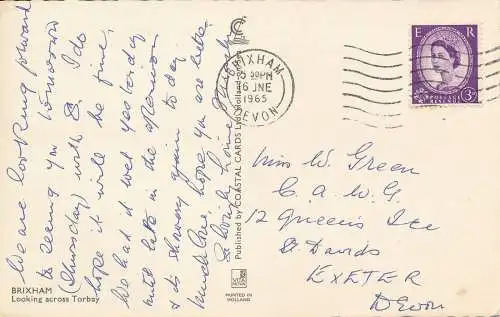 We are looking forward
to seeing you tomorrow
(Thursday) with S. I do
hope it will be fine,
We had it wet yesterday
until late in the afternoon
& is showery again to day
Much love, hope you are
BRIXHAM
Looking across Torbay
Published by COASTAL CARDS Ltd. Holland-on-Sea
PRINTED IN
HOLLAND
BRIXHAM
PM
16 JNE
1965
DEVON
E R
POSTAGE
REVENUE
3D
Miss W. Green
C. A. W. G.
12 Queens Tce
St Davids
EXETER
Devon